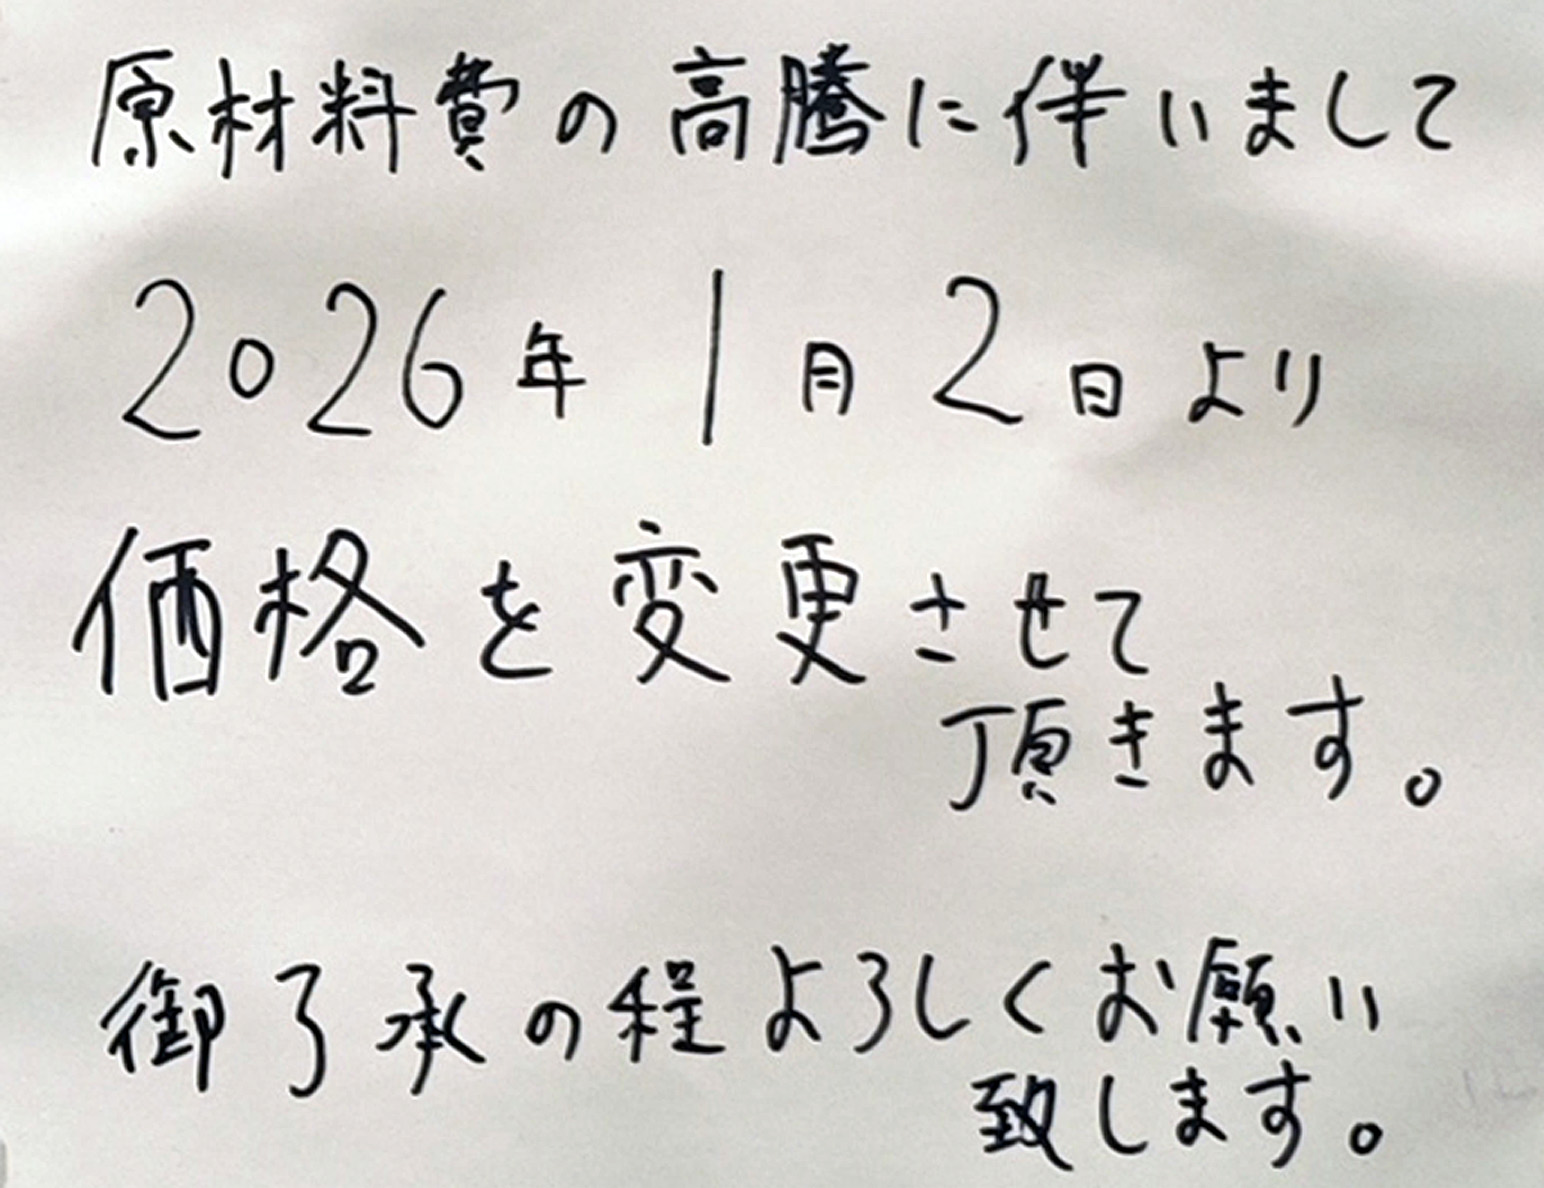 原材料費の高騰に伴いまして
2026年 1月 2日より
価格を変更させて
頂きます。
御了承の程よろしくお願い
致します。